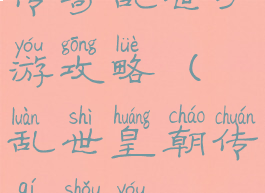 传奇乱世手
yóu gōng lüè
游攻略（
luàn shì huáng cháo chuán
乱世皇朝传
qí shǒu yóu